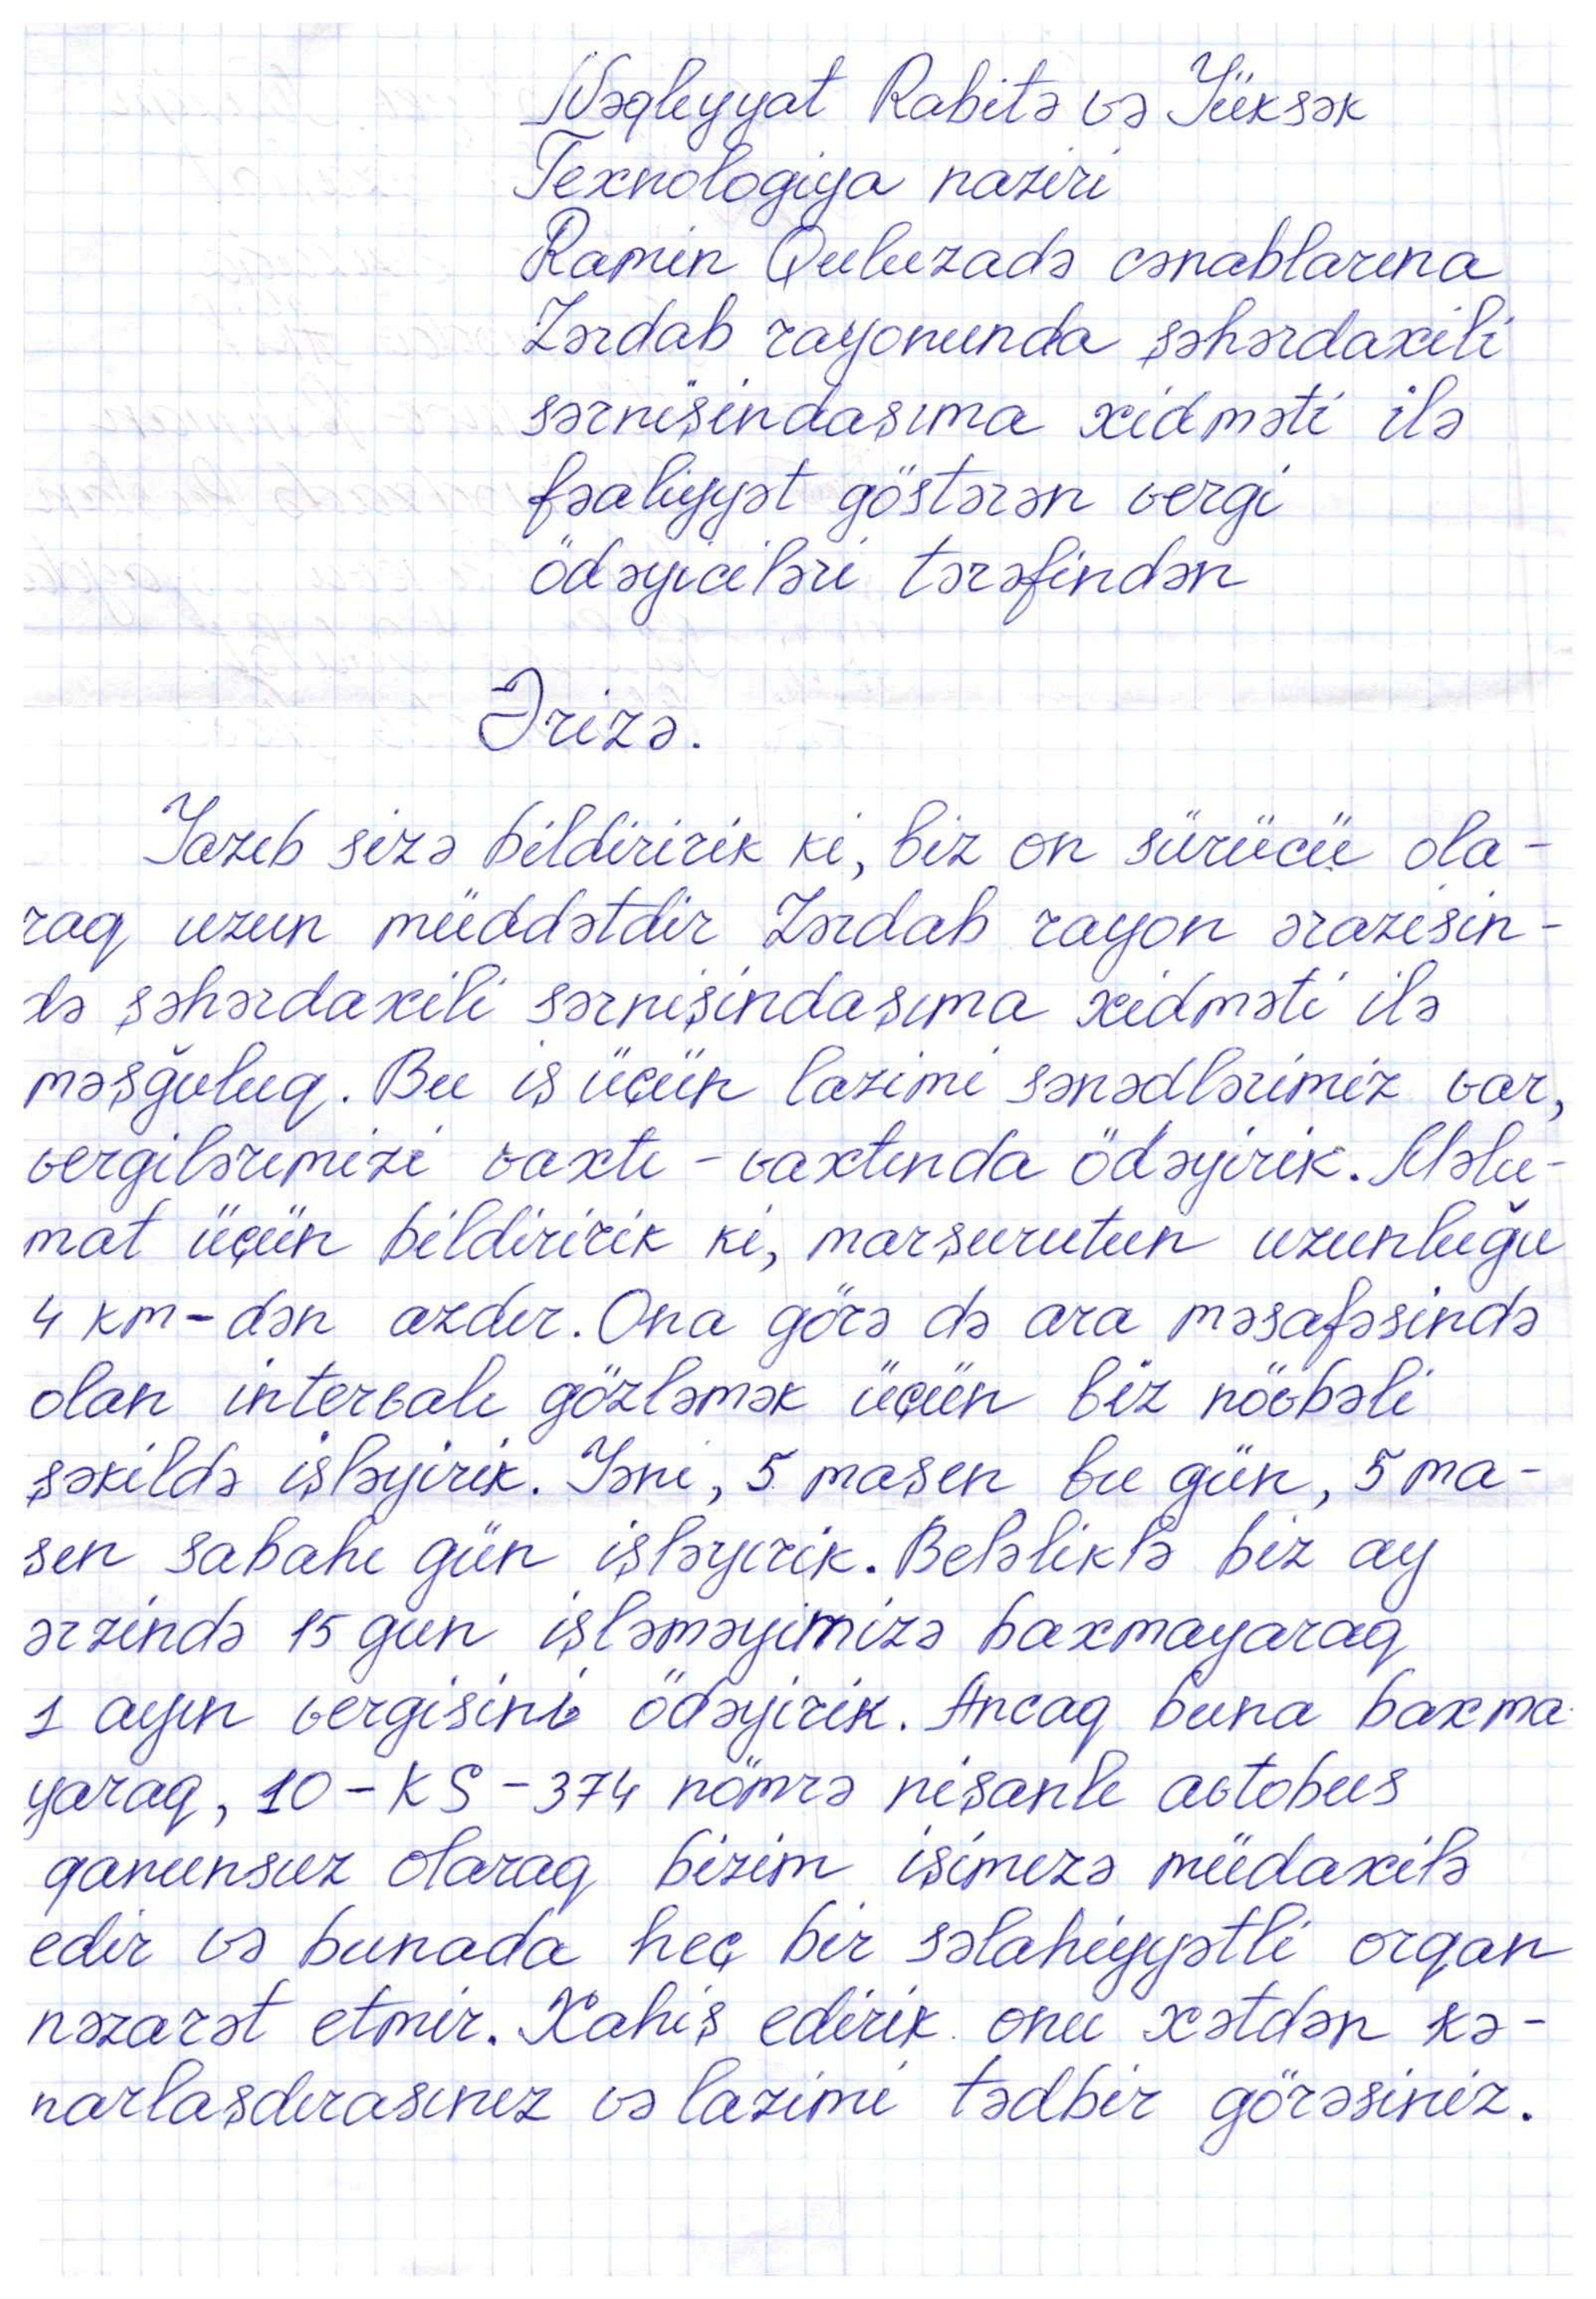 Nəqliyyat Rabitə və Yüksək
Texnologiya naziri
Ramin Quluzadə cənablarına
Zərdab rayonunda şəhərdaxili
sərnişindaşıma xidməti ilə
fəaliyyət göstərən vergi
ödəyiciləri tərəfindən
Ərizə.
Yazıb sizə bildiririk ki, biz on sürücü ola-
raq uzun müddətdir Zərdab rayon ərazisin-
də şəhərdaxili sərnişindaşıma xidməti ilə
məşğuluq. Bu iş üçün lazimi sənədlərimiz var,
vergilərimizi vaxtı-vaxtında ödəyirik. Məlu-
mat üçün bildiririk ki, marşurutun uzunluğu
4 km-dən azdır. Ona görə də ara məsafəsində
olan intervalı gözləmək üçün biz növbəli
şəkildə işləyirik. Yəni, 5 maşın bu gün, 5 ma-
şın sabahı gün işləyirik. Beləliklə biz ay
ərzində 15 gun işləməyimizə baxmayaraq
1 ayın vergisini ödəyirik. Ancaq buna baxma-
yaraq, 10-KS-374 nömrə nişanlı avtobus
qanunsuz olaraq bizim işimizə müdaxilə
edir və bunada heç bir səlahiyyətli orqan
nəzarət etmir. Xahiş edirik onu xətdən kə-
narlaşdırasınız və lazimi tədbir görəsiniz.